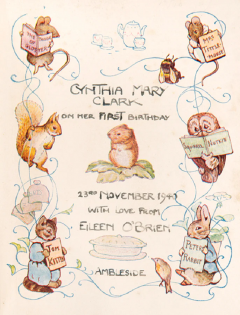 MRS TITTLE-MOUSE
CYNTHIA MARY
CLARK
ON HER FIRST BIRTHDAY
SQUIRREL NUTKIN
23RD NOVEMBER
WITH LOVE FROM
EILEEN O'BRIEN
TOM KITTEN
PETER RABBIT
AMBLESIDE